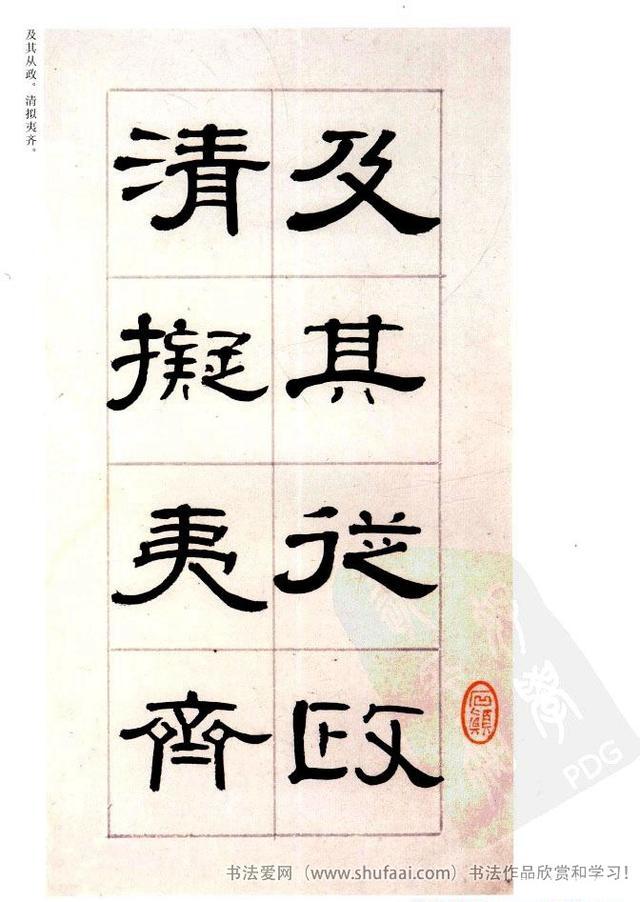 及其从政。清拟夷齐。
及其從政
清擬夷齊
PDG
书法爱网（www.shufaai.com）书法作品欣赏和学习！